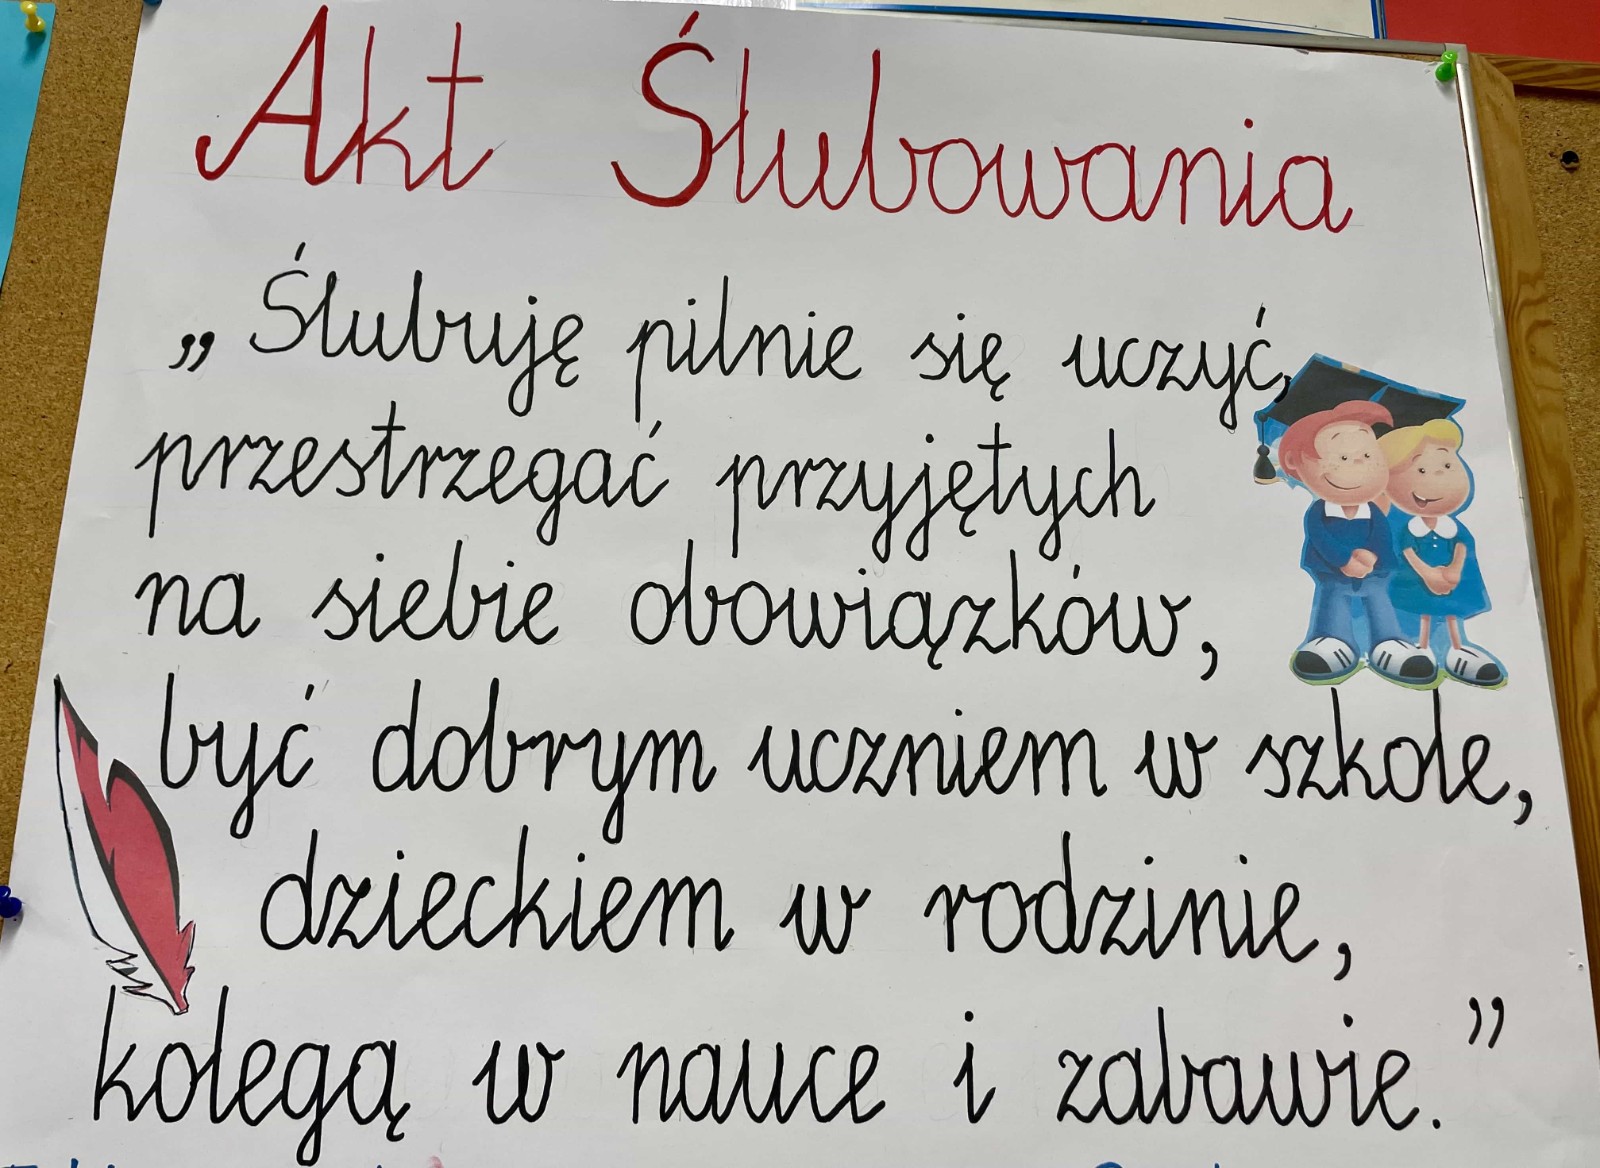 Akt Ślubowania
„Ślubuję pilnie się uczyć,
przestrzegać przyjętych
na siebie obowiązków,
być dobrym uczniem w szkole,
dzieckiem w rodzinie,
kolegą w nauce i zabawie.”